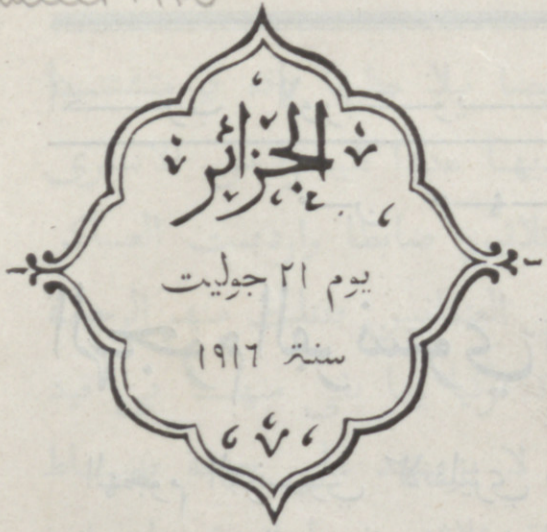 الجزائر
يوم ٢١ جوليت
سنة ١٩١٦